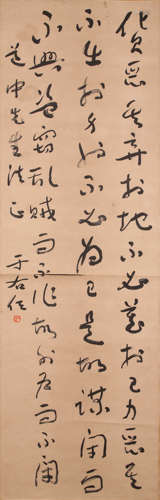 貨惡其棄於地不必藏於己力惡其
不出於身也不必為己是故謀閉而
不興盜竊亂賊而不作故外戶而不閉
中先生法正
于右任